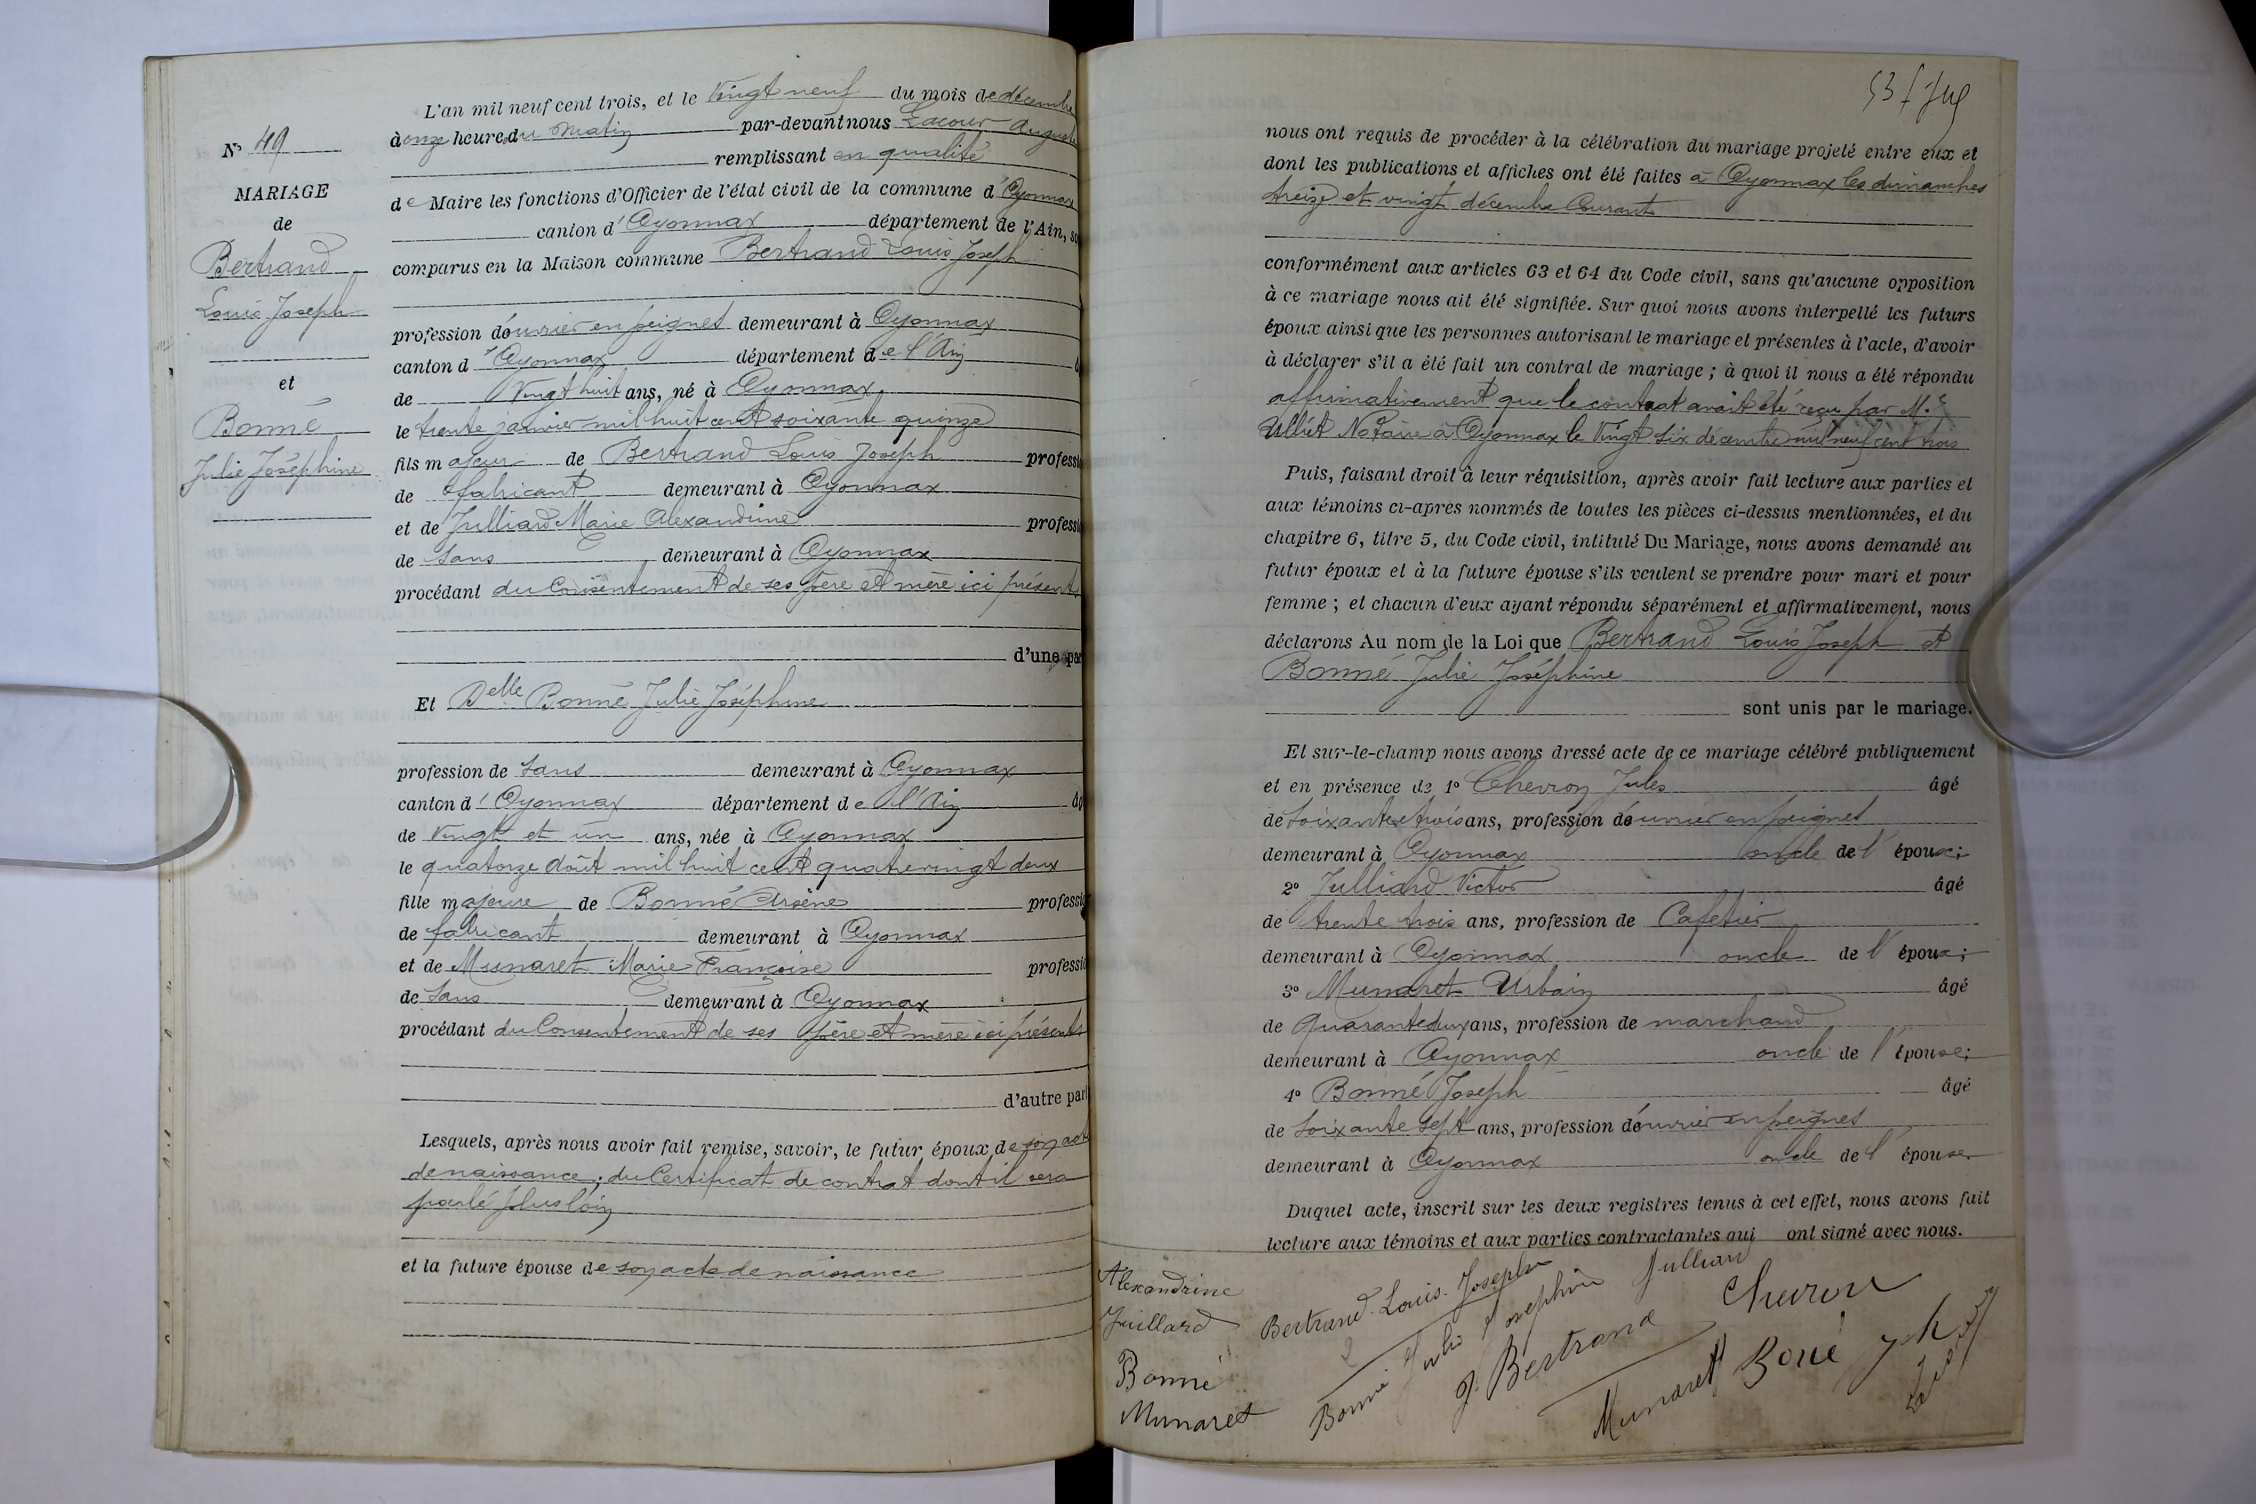 L'an mil neuf cent trois, et le Vingt neuf du mois de décembre
à onze heures du matin par-devant nous Lacour Auguste
remplissant en qualité
de Maire les fonctions d'Officier de l'état civil de la commune d'Oyonnax
canton d'Oyonnax département de l'Ain, so
comparus en la Maison commune Bertrand Louis Joseph
profession d'ouvrier en peignes demeurant à Oyonnax
canton d'Oyonnax département de l'Ain
de Vingt huit ans, né à Oyonnax
le trente janvier mil huit cent soixante quinze
fils majeur de Bertrand Louis Joseph professi
de fabricant demeurant à Oyonnax
et de Julliard Marie Alexandrine professi
de sans demeurant à Oyonnax
procédant du Consentement de ses père et mère ici présents
d'une par
Et Delle Bonné Julie Joséphine
profession de sans demeurant à Oyonnax
canton d'Oyonnax département de l'Ain âg
de Vingt et un ans, née à Oyonnax
le quatorze août mil huit cent quatre vingt deux
fille majeure de Bonné Arsène professi
de fabricant demeurant à Oyonnax
et de Munaret Marie Françoise professi
de sans demeurant à Oyonnax
procédant du Consentement de ses père et mère ici présents
d'autre part
Lesquels, après nous avoir fait remise, savoir, le futur époux de son acte
de naissance; du Certificat de contrat dont il sera
parlé plus loin
et la future épouse de son acte de naissance
N° 49
MARIAGE
de
Bertrand
Louis Joseph
et
Bonné
Julie Joséphine
53
nous ont requis de procéder à la célébration du mariage projeté entre eux et
dont les publications et affiches ont été faites à Oyonnax les dimanches
treize et vingt décembre Courant
conformément aux articles 63 et 64 du Code civil, sans qu'aucune opposition
à ce mariage nous ait été signifiée. Sur quoi nous avons interpellé les futurs
époux ainsi que les personnes autorisant le mariage et présentes à l'acte, d'avoir
à déclarer s'il a été fait un contrat de mariage ; à quoi il nous a été répondu
affirmativement que le contrat avait été reçu par M.e
Ulliet Notaire à Oyonnax le Vingt six décembre mil neuf cent trois
Puis, faisant droit à leur réquisition, après avoir fait lecture aux parties et
aux témoins ci-après nommés de toutes les pièces ci-dessus mentionnées, et du
chapitre 6, titre 5, du Code civil, intitulé Du Mariage, nous avons demandé au
futur époux et à la future épouse s'ils veulent se prendre pour mari et pour
femme ; et chacun d'eux ayant répondu séparément et affirmativement, nous
déclarons Au nom de la Loi que Bertrand Louis Joseph et
Bonné Julie Joséphine
sont unis par le mariage.
Et sur-le-champ nous avons dressé acte de ce mariage célébré publiquement
et en présence de 1° Chevron Jules âgé
de soixante trois ans, profession d'ouvrier en peignes
demeurant à Oyonnax oncle de l'époux;
2° Julliard Victor âgé
de trente trois ans, profession de Cafetier
demeurant à Oyonnax oncle de l'époux;
3° Munaret Urbain âgé
de quarante deux ans, profession de marchand
demeurant à Oyonnax oncle de l'épouse;
4° Bonné Joseph âgé
de soixante sept ans, profession d'ouvrier en peignes
demeurant à Oyonnax oncle de l'épouse
Duquel acte, inscrit sur les deux registres tenus à cet effet, nous avons fait
lecture aux témoins et aux parties contractantes qui ont signé avec nous.
Alexandrine
Juillard
Bonné
Munaret
Bertrand Louis Joseph
Bonné Julie Josephine
Julliard
J. Bertrand
Chevron
Munaret
Boné